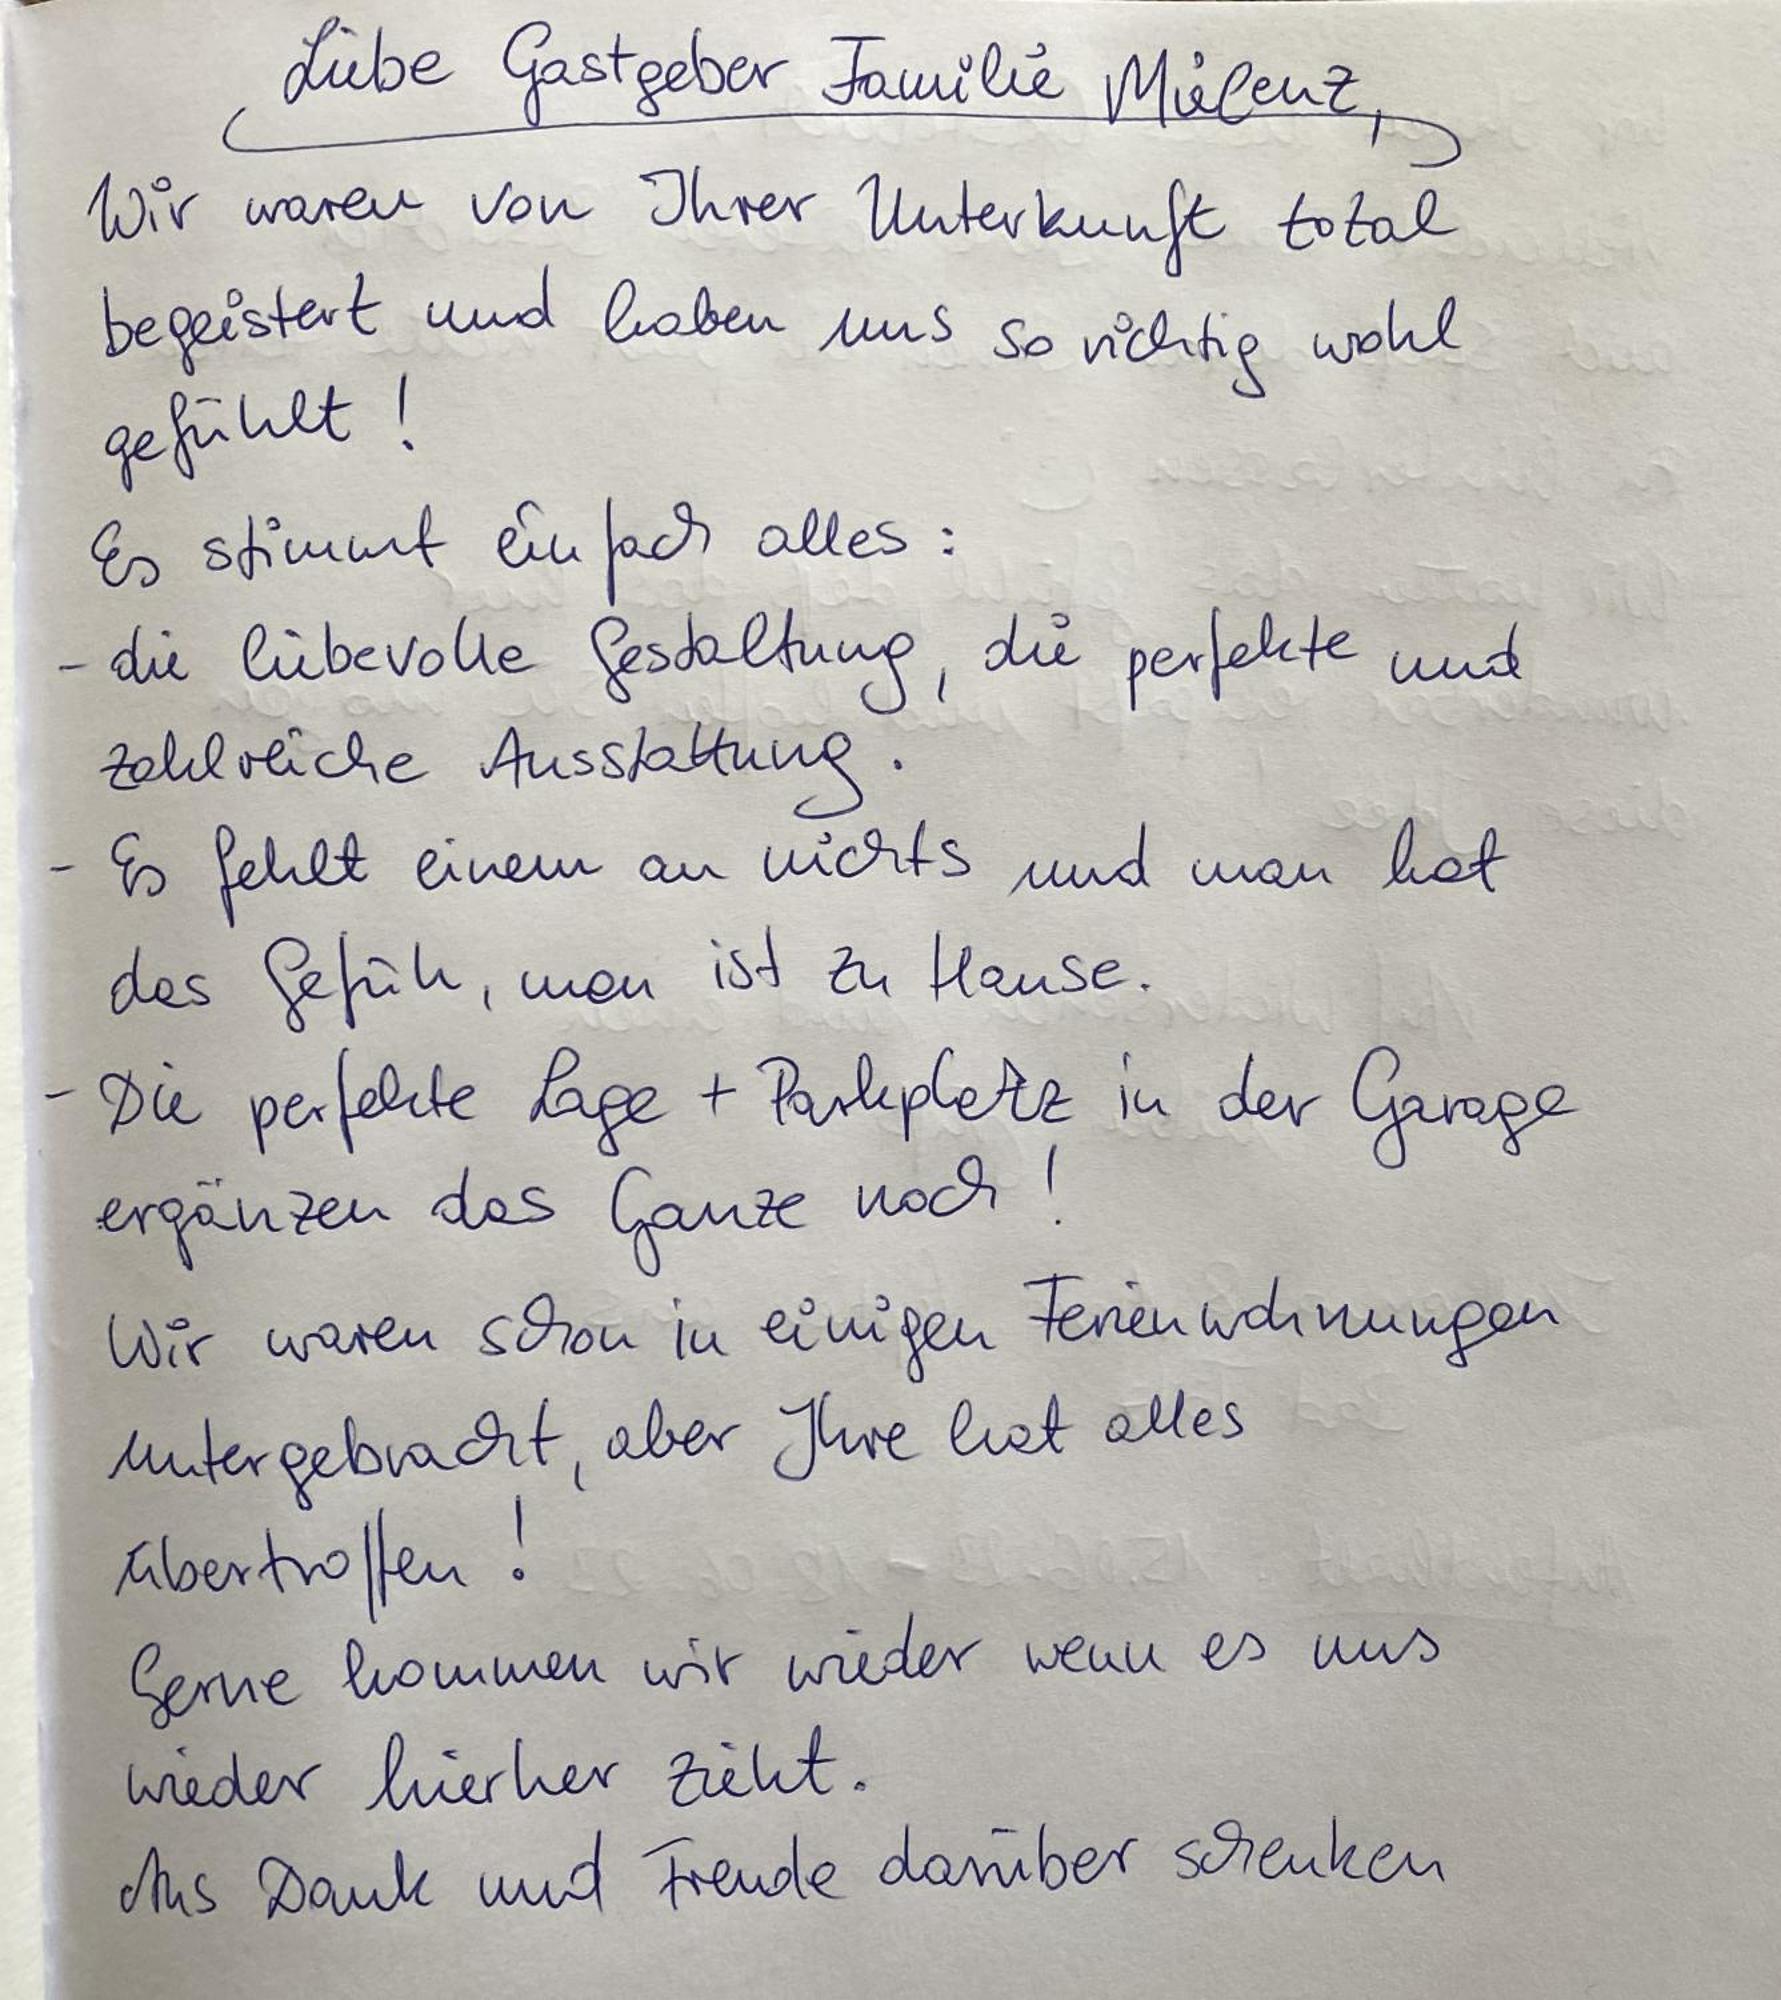 Liebe Gastgeber Familie Mielenz,
Wir waren von Ihrer Unterkunft total
begeistert und haben uns so richtig wohl
gefühlt !
Es stimmt einfach alles :
- die liebevolle Gestaltung, die perfekte und
zahlreiche Ausstattung .
- Es fehlt einem an nichts und man hat
das Gefühl, man ist zu Hause.
- Die perfekte Lage + Parkpletz in der Garage
ergänzen das Ganze noch !
Wir waren schon in einigen Ferienwohnungen
untergebracht, aber Ihre hat alles
übertroffen !
Gerne kommen wir wieder wenn es uns
wieder hierher zieht.
Aus Dank und Freude darüber schenken